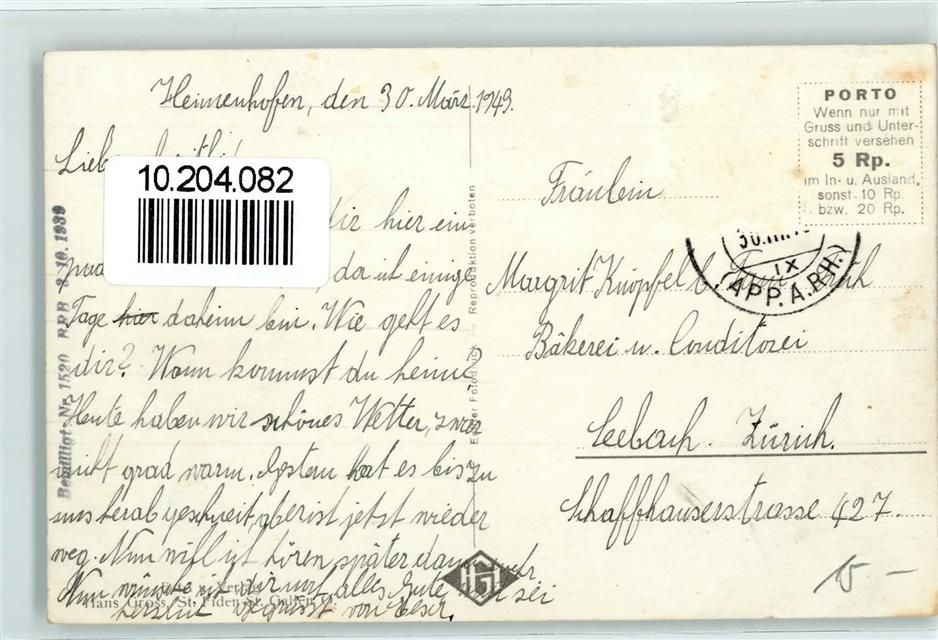 Heimenhofen, den 30. März 1943.
10.204.082
dir hier ein
da ich einige
Tage hier daheim bin. Wie geht es
dir? Wann kommst du heim?
Heute haben wir schönes Wetter, zwar
nicht grad warm. Gestern hat es bis zu
uns herab geschneit, aber ist jetzt wieder
weg. Nun will ich hören später dann mehr
Nun wünsche ich dir noch alles Gute
herzlich gegrüsst von
Bewilligt Nr. 1520 BRB 3.10.1939
Foto u. Verlag
Hans Gross, St. Fiden-St. Gallen
HG
Reproduktion verboten
PORTO
Wenn nur mit
Gruss und Unter-
schrift versehen
5 Rp.
im In- u. Ausland,
sonst 10 Rp.
bzw. 20 Rp.
30.III.
IX
(APP. A. RH.)
Fräulein
Margrit Knöpfel b. Fam.
Bäkerei u. Conditorei
Seebach. Zürich.
Schaffhauserstrasse 427.
15 –